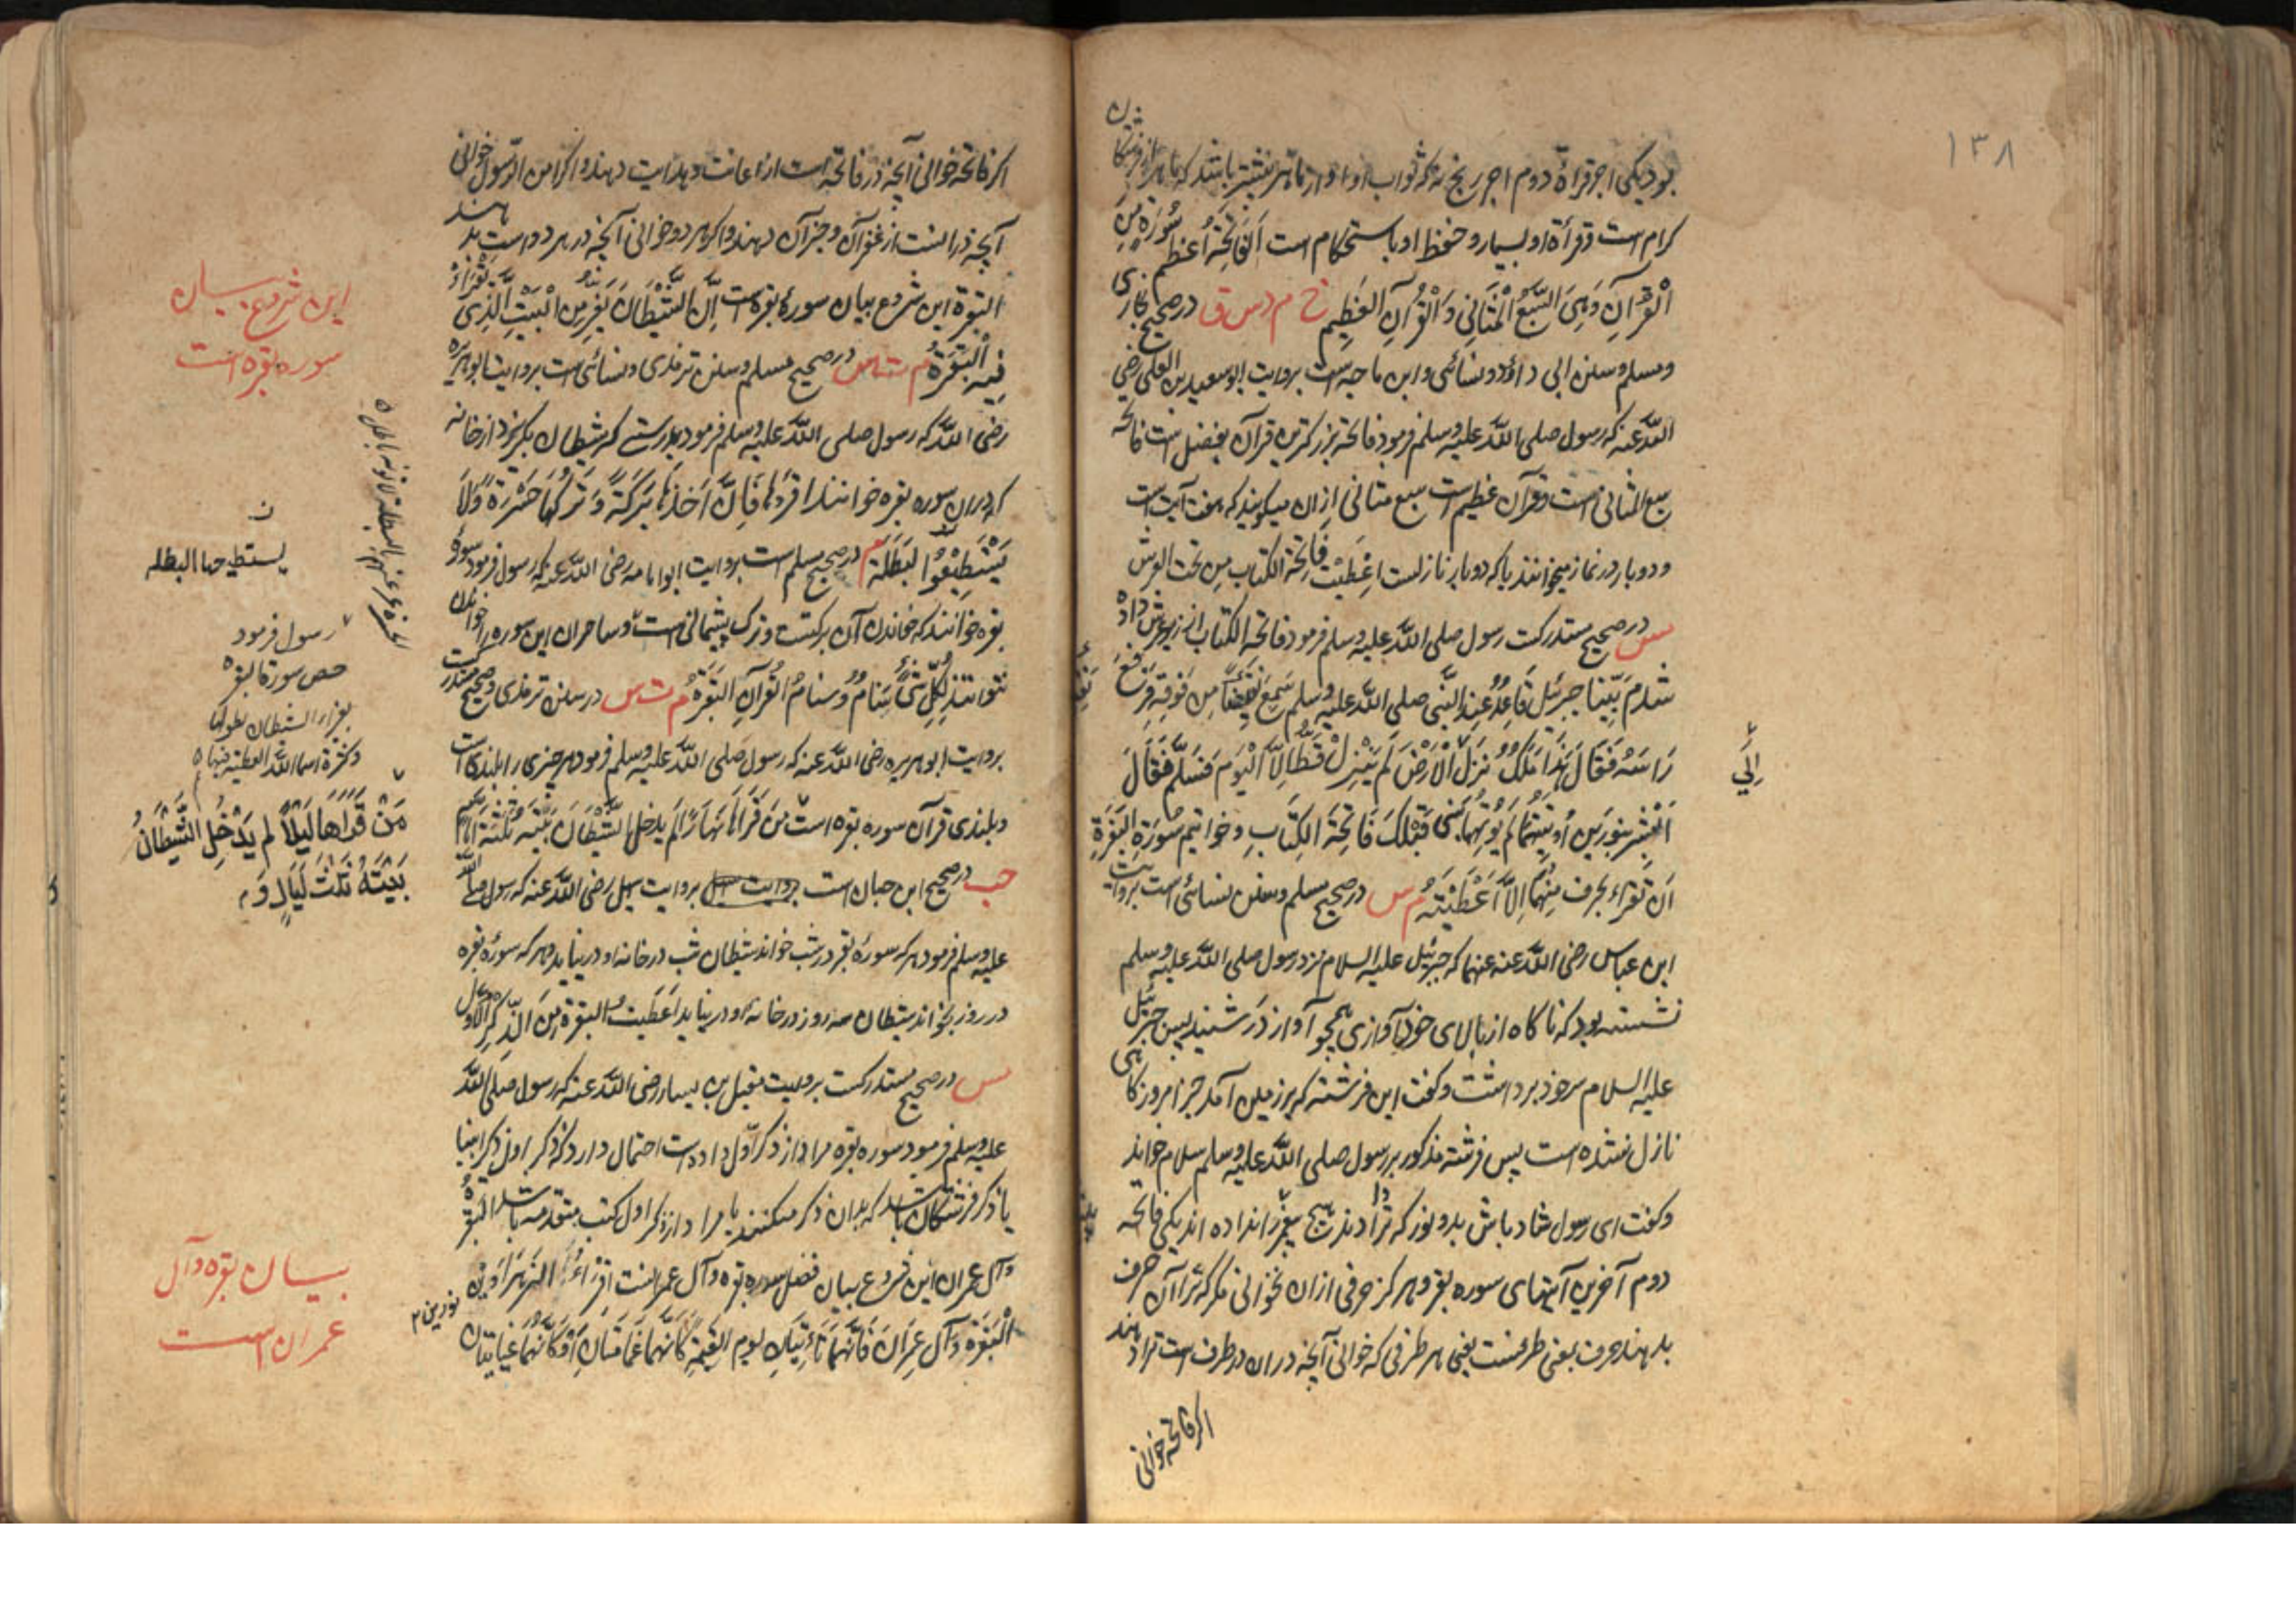 ۱۳۸
بود یکی اجر قراءة دوم اجر رنج نه که ثواب او از ماهر بیشتر باشد که ماهر از فرشتکان
کرام است و قرأة او بسیار و حفظ او باستحکام است اَلفَاتِحَةُ اَعْظَمُ سُورَةٍ مِنَ
الْقُرْآنِ وَهِیَ السَّبْعُ الْمَثَانِی وَالْقُرْآنِ العَظِیمِ خ م د س ق در صحیح بخاری
ومسلم وسنن ابی داؤد ونسائی وابن ماجه است بروایت ابو سعید بن المعلی رضی
اللّه عنه که رسول صلی اللّه علیه وسلم فرمود فاتحه بزرکترین قرآن بفضل است فاتحه
سبع المثانی است وقرآن عظیم است سبع مثانی ازان میکویند که هفت آیت است
و دوبار در نماز میخوانند یا که دوبار نازلست اعْطِیْتُ فَاتِحَةَ الکتاب مِن تحت العرش
مس در صحیح مستدرکست رسول صلی اللّه علیه وسلم فرمود فاتحة الکتاب از زیر عرش داده
شدم بَیْنَا جبرئیل قَاعِدٌ عِندَ النَّبی صلی اللّه علیه وسلم سَمِعَ نَقِیْضاً مِن فَوقِهِ فَرَفَعَ
رَاسَهُ فَقَالَ هَذَا مَلَکٌ نَزَلَ الْاَرْضَ لَم یَنْزِلْ قَطُّ اِلَّا الْیَومَ فَسَلَّمَ فَقَالَ
اِلَی
اَبْشِر بِنُورَینِ اُوتِیتَهُمَا لَم یُوتَهُمَا نَبِیٌّ قَبْلَکَ فَاتِحَةَ الکِتَابِ وخواتیم سورَةِ البَقَرَةِ
لَن تَقرَاءَ بحرف مِنْهُمَا اِلَّا اُعْطِیْتَهُ م س در صحیح مسلم وسنن نسائی است بروایت
ابن عباس رضی اللّه عنه عنهما که جبرئیل علیه السلام نزد رسول صلی اللّه علیه وسلم
نشسته بود که ناکاه از بالای خود آوازی همچو آواز در شنید پس جبرئیل
علیه السلام سر خود برداشت وکفت این فرشته که بر زمین آمد جز امروز کاهی
نازل نشده است پس فرشته مذکور بر رسول صلی اللّه علیه وسلم سلام خواند
وکفت ای رسول شاد باش بدو نور که ترا دادند هیچ پیغمبر را نداده اند یکی فاتحه
دوم آخرین آیتهای سوره بقره هرکز حرفی ازان نخوانی مکر که ترا آن حرف
بدهند حرف بمعنی طرفست یعنی هر طرفی که خوانی آنچه دران درطرف است ترا دهند
اکر فاتحه خوانی
اکر فاتحه خوانی آنچه در فاتحه است از اعانت وهدایت دهند واکر آمن الرسول خوانی
آنچه درانست از غفران وجز آن دهند واکر هر دو خوانی آنچه در هر دو است بدهند
البقرة این شروع بیان سورۀ بقره است اِنَّ الشَّیْطَانَ یَفِرُّ مِنَ الْبَیْتِ الَّذِی تُقْرَاءُ
فِیهِ الْبَقَرَةُ م ت س در صحیح مسلم وسنن ترمذی ونسائی است بروایت ابو هریره
رضی اللّه که رسول صلی اللّه علیه وسلم فرمود بدرستی که شیطان بکریزد از خانه
که دران سوره بقره خوانند اقرؤها فَاِنَّ اَخْذَهَا بَرَکَةً وَتَرْکَهَا حَسْرَةً وَلَا
یَسْتَطِیْعُوا البَطَلَة م در صحیح مسلم است بروایت ابو امامه رضی اللّه عنه که رسول فرمود سورۀ
بقره خوانند که خاندن آن برکتست وترک پشیمانی است وساحران این سوره را خواندن
نتوانند لِکُلِّ شَیٍٔ سَنَامٌ وسنامُ القُرآنِ البَقَرَةُ م ت س در سنن ترمذی وصحیح مستدرکست
بروایت ابو هریره رضی اللّه عنه که رسول صلی اللّه علیه وسلم فرمود هر چیزی را بلندی است
وبلندی قرآن سوره بقره است مَن قَرَاَهَا نَهَارًا لَم یدخل الشَّیْطَان بَیْتَه ثَلٰثَةَ اَیَّام
حب در صحیح ابن حبان است بروایت سهل بروایت سهل رضی اللّه عنه که رسول صلی اللّه
علیه وسلم فرمود هر که سورۀ بقر در شب خواند شیطان شب در خانه او در نیاید وهر که سورۀ بقره
در روز بخواند شیطان سه روز در خانه او در نیاید اُعْطِیْتُ البَقَرَة مِنَ الذِّکْرِ الْاَوَّلِ
مس در صحیح مستدرکست بروایت معقل بن یسار رضی اللّه عنه که رسول صلی اللّه
علیه وسلم فرمود سوره بقره مرا از ذکر اوّل داده است احتمال دارد که ذکر اول ذکر انبیا
یا ذکر فرشتکان باشد که بدان ذکر میکنند یا مراد از ذکر اول کتب متقدمه باشد البقرة
وآل عمران این شروع بیان فضل سوره بقره وآل عمرانست اقْرَاءُ الزَّهْرَاوَینِ
الْبَقَرَةَ وآل عِمرَانَ فَاِنَّهُمَا تَاْتِیَانِ یوم القیٰمةِ کَاَنَّهُمَا غَمَامَتَانِ اَوْ کَاَنَّهُمَا غیایَتَان
این شروع بیان
سوره بقره است
ن
یستطیعها البطله
رسول فرمود
حص سورة البقرة
وکثرة اسماء اللّه العظیم فیها
مَنْ قَرَاَهَا لَیْلاً لم یَدْخُلِ الشَّیْطَانُ
بَیْتَهُ ثَلٰثَ لَیَالٍ وَم
بیان بقره وآل
عمران است
نورین